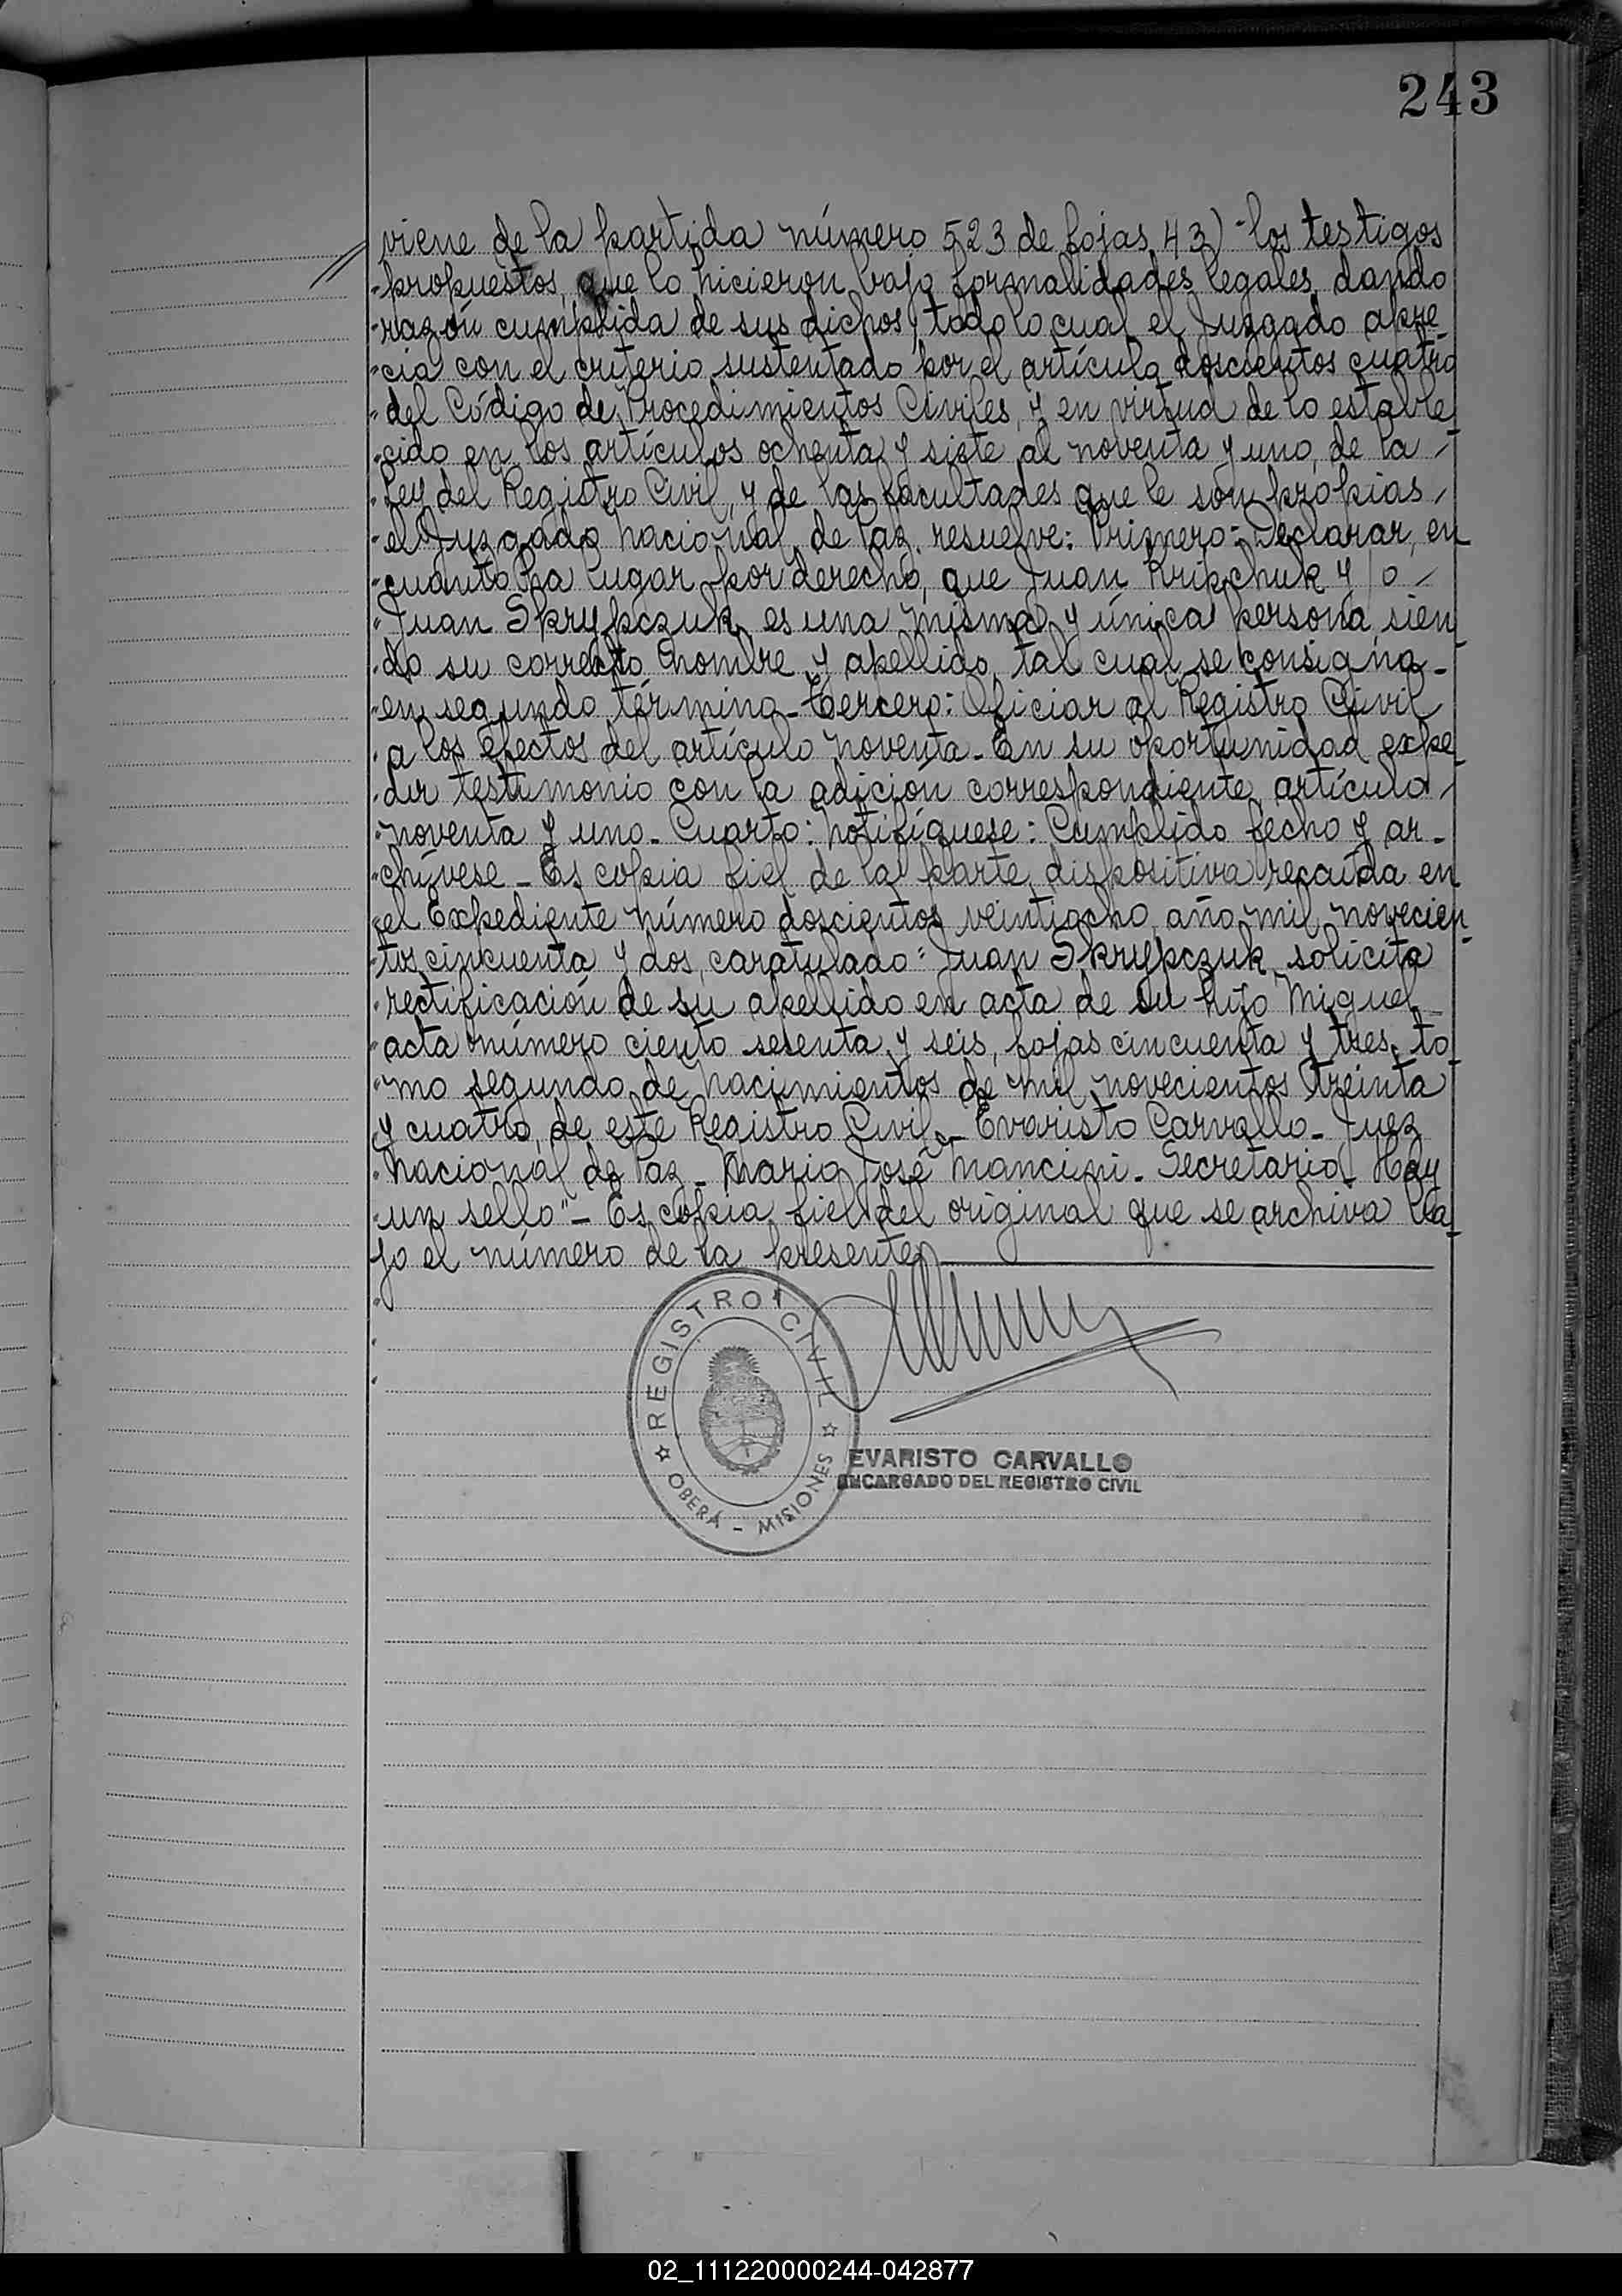 243
viene de la partida número 523 de fojas 43) - los testigos
"propuestos, que lo hicieron bajo formalidades legales, dando
"razón cumplida de sus dichos, todo lo cual el Juzgado apre-
"cia con el criterio sustentado por el artículo doscientos cuatro
"del Código de Procedimientos Civiles, y en virtud de lo estable
"cido en los artículos ochenta y siete al noventa y uno, de la /
"Ley del Registro Civil, y de las facultades que le son propias /
"el Juzgado Nacional de Paz. resuelve: Primero: Declarar, en
"cuanto ha lugar por derecho, que Juan Kripchuk y/o /
"Juan Skrypczuk es una misma y única persona, sien
"do su correcto nombre y apellido, tal cual se consigna -
"en segundo término - Tercero: Oficiar al Registro Civil
"a los efectos del artículo noventa - En su oportunidad expe
"dir testimonio con la adición correspondiente, artículo /
"noventa y uno - Cuarto: Notifíquese: Cumplido fecho y ar-
"chívese - Es copia fiel de la parte dispositiva recaída en
"el Expediente número doscientos veintiocho año mil novecien-
"tos cincuenta y dos, caratulado: Juan Skrypczuk, solicita
"rectificación de su apellido en acta de su hijo Miguel
"acta número ciento sesenta y seis, fojas cincuenta y tres, to
"mo segundo de nacimientos de mil novecientos treinta
"y cuatro, de este Registro Civil - Evaristo Carvallo - Juez
"Nacional de Paz - Mario José Mancini - Secretario - Hay
"un sello" - Es copia fiel del original que se archiva ba
jo el número de la presente
REGISTRO CIVIL
OBERÁ - MISIONES
EVARISTO CARVALLO
ENCARGADO DEL REGISTRO CIVIL
02_111220000244-042877